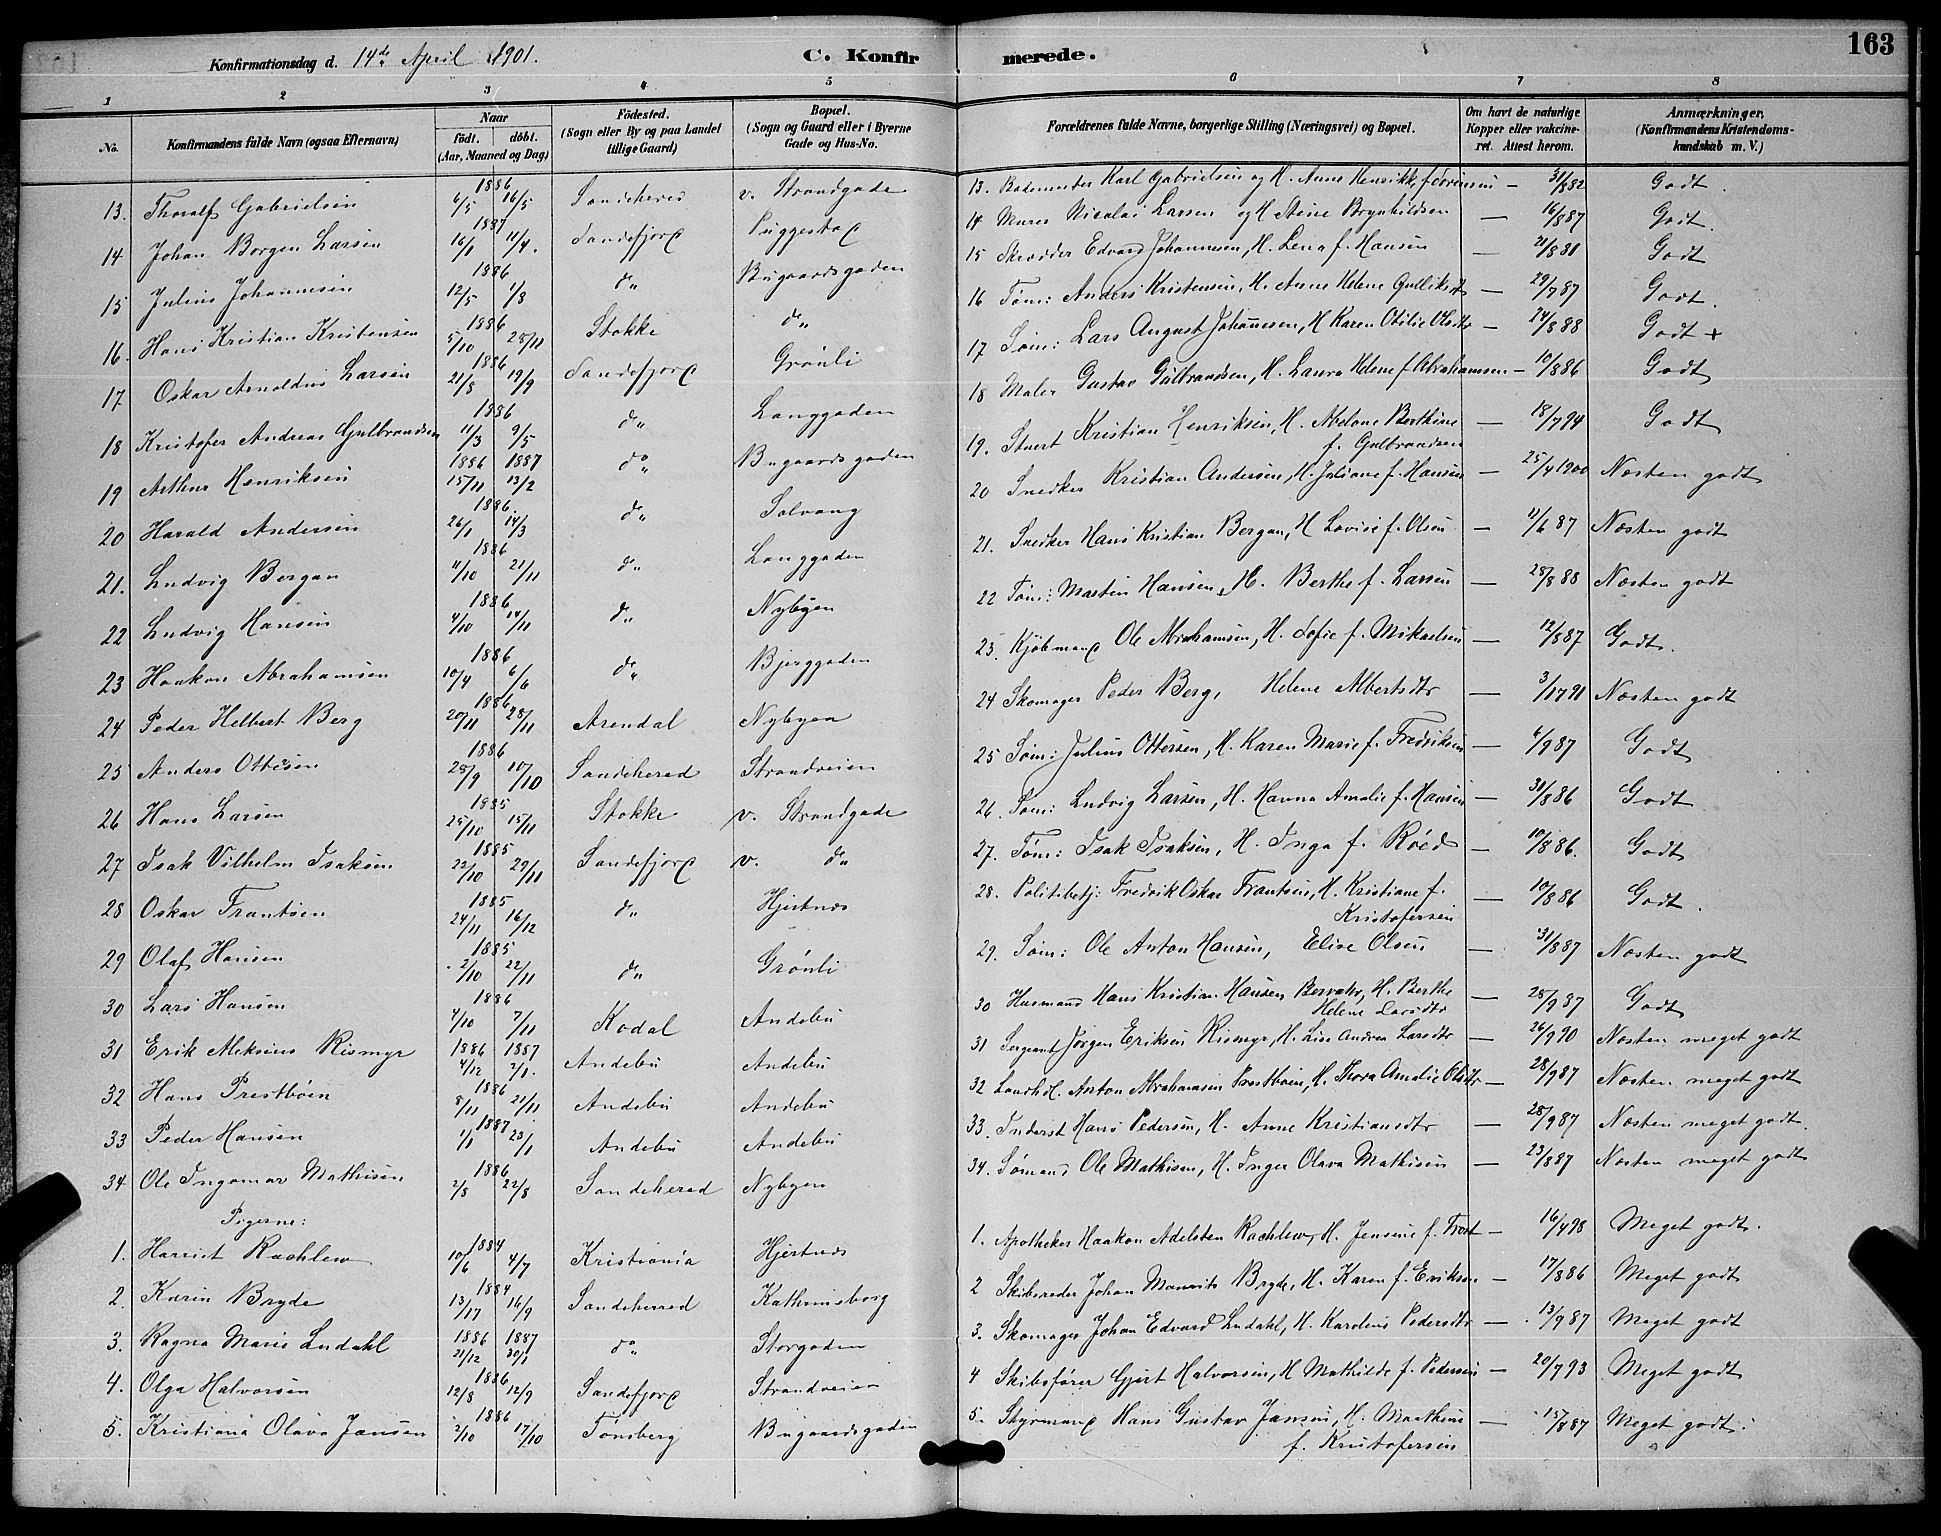 Konfirmationsdag d. 14de April 1901.
C. Konfirmerede.
163
1 2 3 4 5 6 7 8
No. Konfirmandens fulde Navn (ogsaa Efternavn) Naar födt. döbt. (Aar, Maaned og Dag) Födested. (Sogn eller By og paa Landet tillige Gaard) Bopæl. (Sogn og Gaard eller i Byerne Gade og Hus-No. Forældrenes fulde Navne, borgerlige Stilling (Næringsvei) og Bopæl. Om havt de naturlige Kopper eller vakcineret. Attest herom. Anmærkninger, (Konfirmandens Kristendomskundskab m. V.)
13. Thoralf Gabrielsen 1886 6/5 16/5 Sandeherred v. Strandgade 13. Bademester Karl Gabrielsen og H. Anne Henrikke f. Sörensen — 31/8 82 Godt.
14 Johan Borgen Larsen 1887 16/1 11/4. Sandefjord Puggestad 14 Murer Nicolai Larsen og H Stine Brynhildsen — 16/8 87 Godt.
15 Julius Johannesen 1886 12/5 1/8 do Bugaardsgaden 15 Skrædder Edvard Johannesen, H. Lena f. Hansen — 21/8 88 Godt
16. Hans Kristian Kristensen 1886 5/10 25/11 Stokke do 16 Töm: Anders Kristensen, H. Anne Helene Gulliksdtr — 29/7 87 Godt.
17 Oskar Arnoldus Larsen 1886 21/8 19/9 Sandefjord Grönli 17 Söm: Lars August Johannesen, H Karen Otilie Olsdtr — 24/8 88 Godt +
18 Kristofer Andreas Gulbrandsen 1886 11/3 9/5 do Langgaden 18 Maler Gustav Gulbrandsen, H. Laura Helene f. Abrahamsen — 10/8 86 Godt
19 Arthur Henriksen 1886 15/11 1887 13/2 do Bugaardsgaden 19. Stuert Kristian Henriksen, H. Abelone Berthine f. Gulbrandsen — 18/7 94 Godt
20 Harald Andersen 1886. 26/1 14/3 do Solvang 20 Snedker Kristian Andersen, H. Juliane f. Hansen — 25/4 1900 Næsten godt
21. Ludvig Bergan 1886 11/10 21/11 do Langgaden 21. Snedker Hans Kristian Bergan, H Lovise f. Olsen — 11/6 87 Næsten godt
22 Ludvig Hansen 1886 4/10 14/11 do Nybyen 22 Töm: Martin Hansen, H. Berthe f. Larsen — 28/8 88 Næsten godt
23 Haakon Abrahamsen 1886 10/4 6/6 do Bjerggaden 23. Kjöbmand Ole Abrahamsen, H. Sofie f. Mikaelsen — 12/8 87 Godt.
24 Peder Helbert Berg 1886 20/11 28/11 Arendal Nybyen 24 Skomager Peder Berg, Helene Albertsdtr — 3/17 91 Næsten godt
25 Anders Ottesen 1886 28/9 10/10 Sandeherred Strandveien 25 Söm: Julius Ottersen, H. Karen Marie f. Fredriksen — 6/9 87 Godt
26 Hans Larsen 1885 25/10 15/11 Stokke v. Strandgade 26. Söm: Ludvig Larsen, H. Hanna Amalie f. Hansen — 31/8 86 Godt
27 Isak Vilhelm Isaksen 1885 22/10 29/11 Sandefjord v. do 27. Töm: Isak Isaksen, H. Inga f. Röed — 10/8 86. Godt
28 Oskar Frantsen 1885 24/11 16/12 do Hjertnes 28. Politibetj: Fredrik Oskar Frantsen, H. Kristiane f. Kristofersen — 10/8 86 Godt.
29 Olaf Hansen 1885 2/10 22/11 do Grönli 29. Söm: Ole Anton Hansen, Elise Olsen — 31/8 87 Næsten godt
30 Lars Hansen 1886 4/10 7/11 Kodal Andebu 30 Husmand Hans Kristian Hansen H. Berthe Helene Larsdtr — 28/9 87 Godt
31 Erik Aleksius Rismyr 1886 4/12 1887 2/1. Andebu Andebu 31 Sergeant Jörgen Eriksen Rismyr, H. Lise Andrea Larsdtr — 26/9 90 Næsten meget godt
32 Hans Prestböen 1886 8/11 21/11 Andebu Andebu 32 Landh. Anton Abrahamsen Prestböen, H. Thora Amalie Olsdtr — 28/9 87 Næsten meget godt
33 Peder Hansen 1887 1/1 23/1 Andebu Andebu 33. Inderst Hans Pedersen, H. Anne Kristiansdtr — 28/9 87 Næsten meget godt.
34 Ole Ingomar Mathisen 1886 2/8 22/8 Sandeherred Nybyen 34. Sömand Ole Mathisen, H. Inger Olava Mathisen — 23/8 87 Næsten meget godt
Pigerne:
1. Harriet Rachlew 1884 10/6 4/7 Kristiania Hjertnes 1. Apotheker Haakon Adelsten Rachlew, H. Jensine f. Trost — 16/4 98 Meget godt.
2. Karin Bryde 1884 13/17 16/9 Sandeherred Kathrinsborg 2 Skibsreder Johan Mauritz Bryde, H. Karen f. Eriksen — 17/8 86 Meget godt
3. Ragna Marie Lndahl 1886 21/12 1887 30/1 do Storgaden 3. Skomager Johan Edvard Lndahl, H. Karoline Pedersdtr — 13/9 87 Meget godt
4. Olga Halvorsen 1886 12/8 12/9 Sandefjord Strandveien 4 Skibsförer Gjert Halvorsen, H Mathilde f. Pedersen — 20/7 93 Meget godt
5. Kristiana Olava Jansen 1886 2/10 17/10 Tönsberg Bugaardsgaden 5. Styrmand Hans Gustav Jansen, H. Marthine f. Kristofersen — 15/8 87 Meget godt.